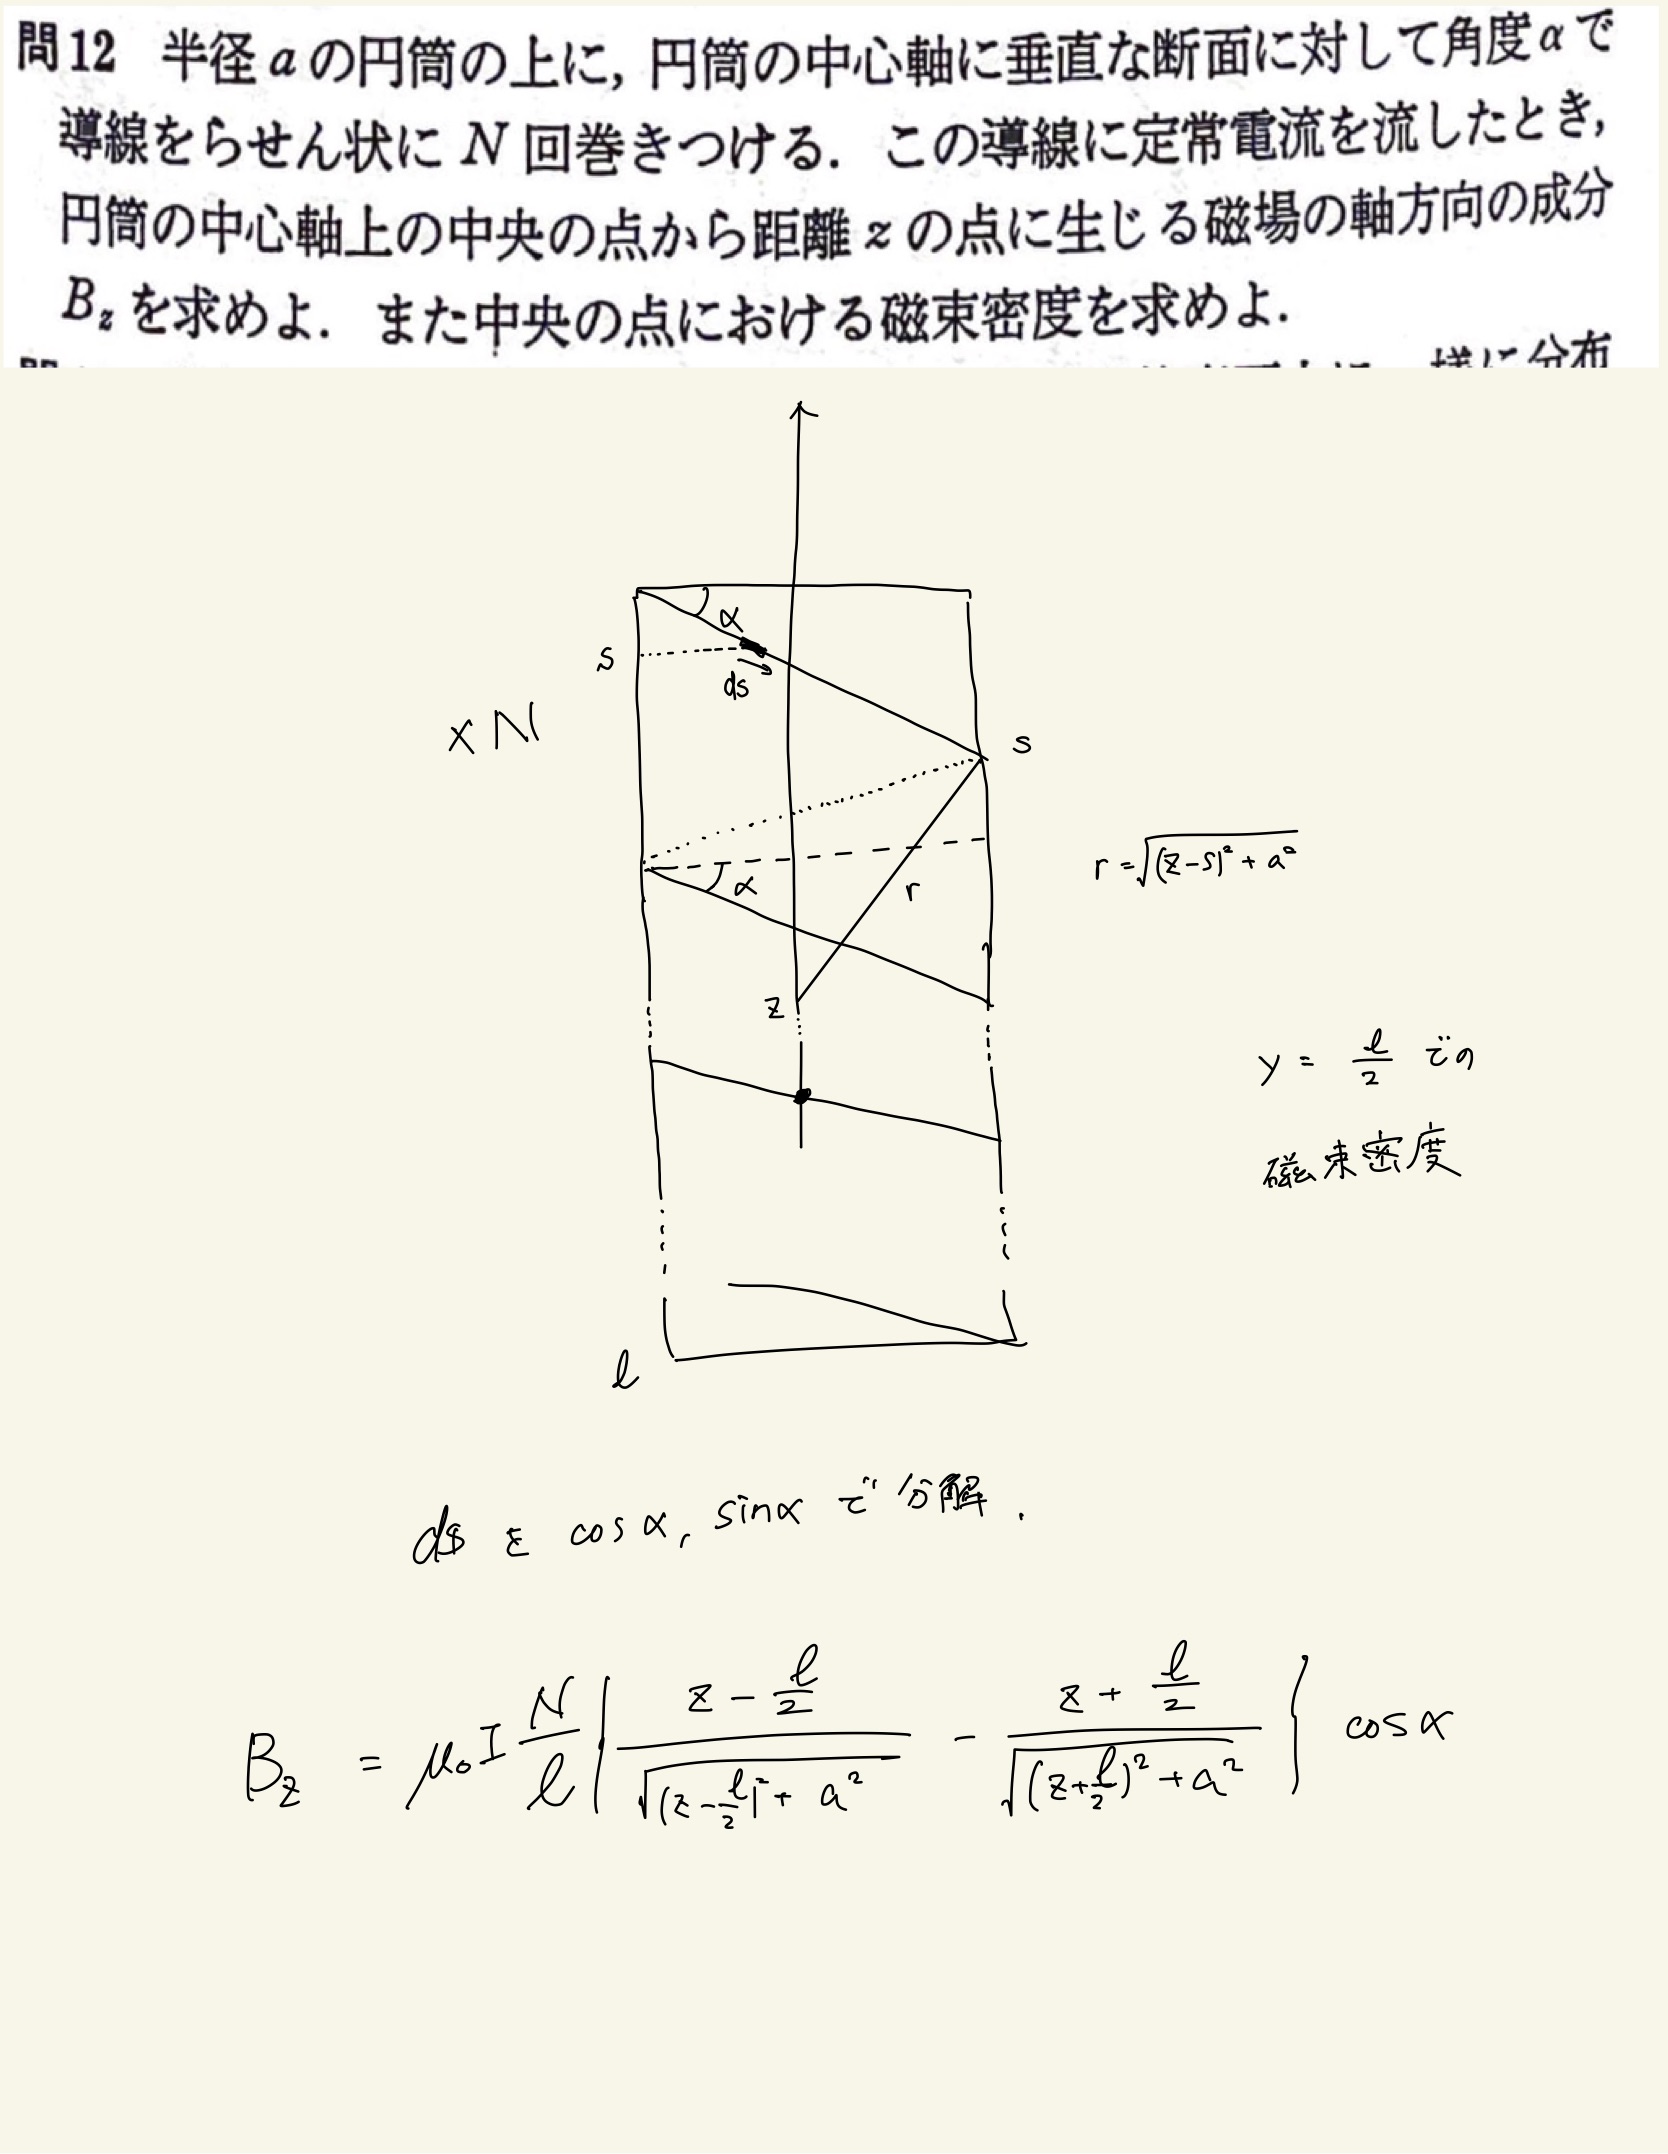 問12 半径aの円筒の上に，円筒の中心軸に垂直な断面に対して角度αで
導線をらせん状にN回巻きつける．この導線に定常電流を流したとき，
円筒の中心軸上の中央の点から距離zの点に生じる磁場の軸方向の成分
B_zを求めよ．また中央の点における磁束密度を求めよ．
様に分布
α
s
ds
×N
s
r = √((z-s)² + a²)
α
r
z
y = l/2 での
磁束密度
l
ds を cosα, sinα で分解.
B_z = μ₀I N/l { (z - l/2)/√((z - l/2)² + a²) - (z + l/2)/√((z + l/2)² + a²) } cosα